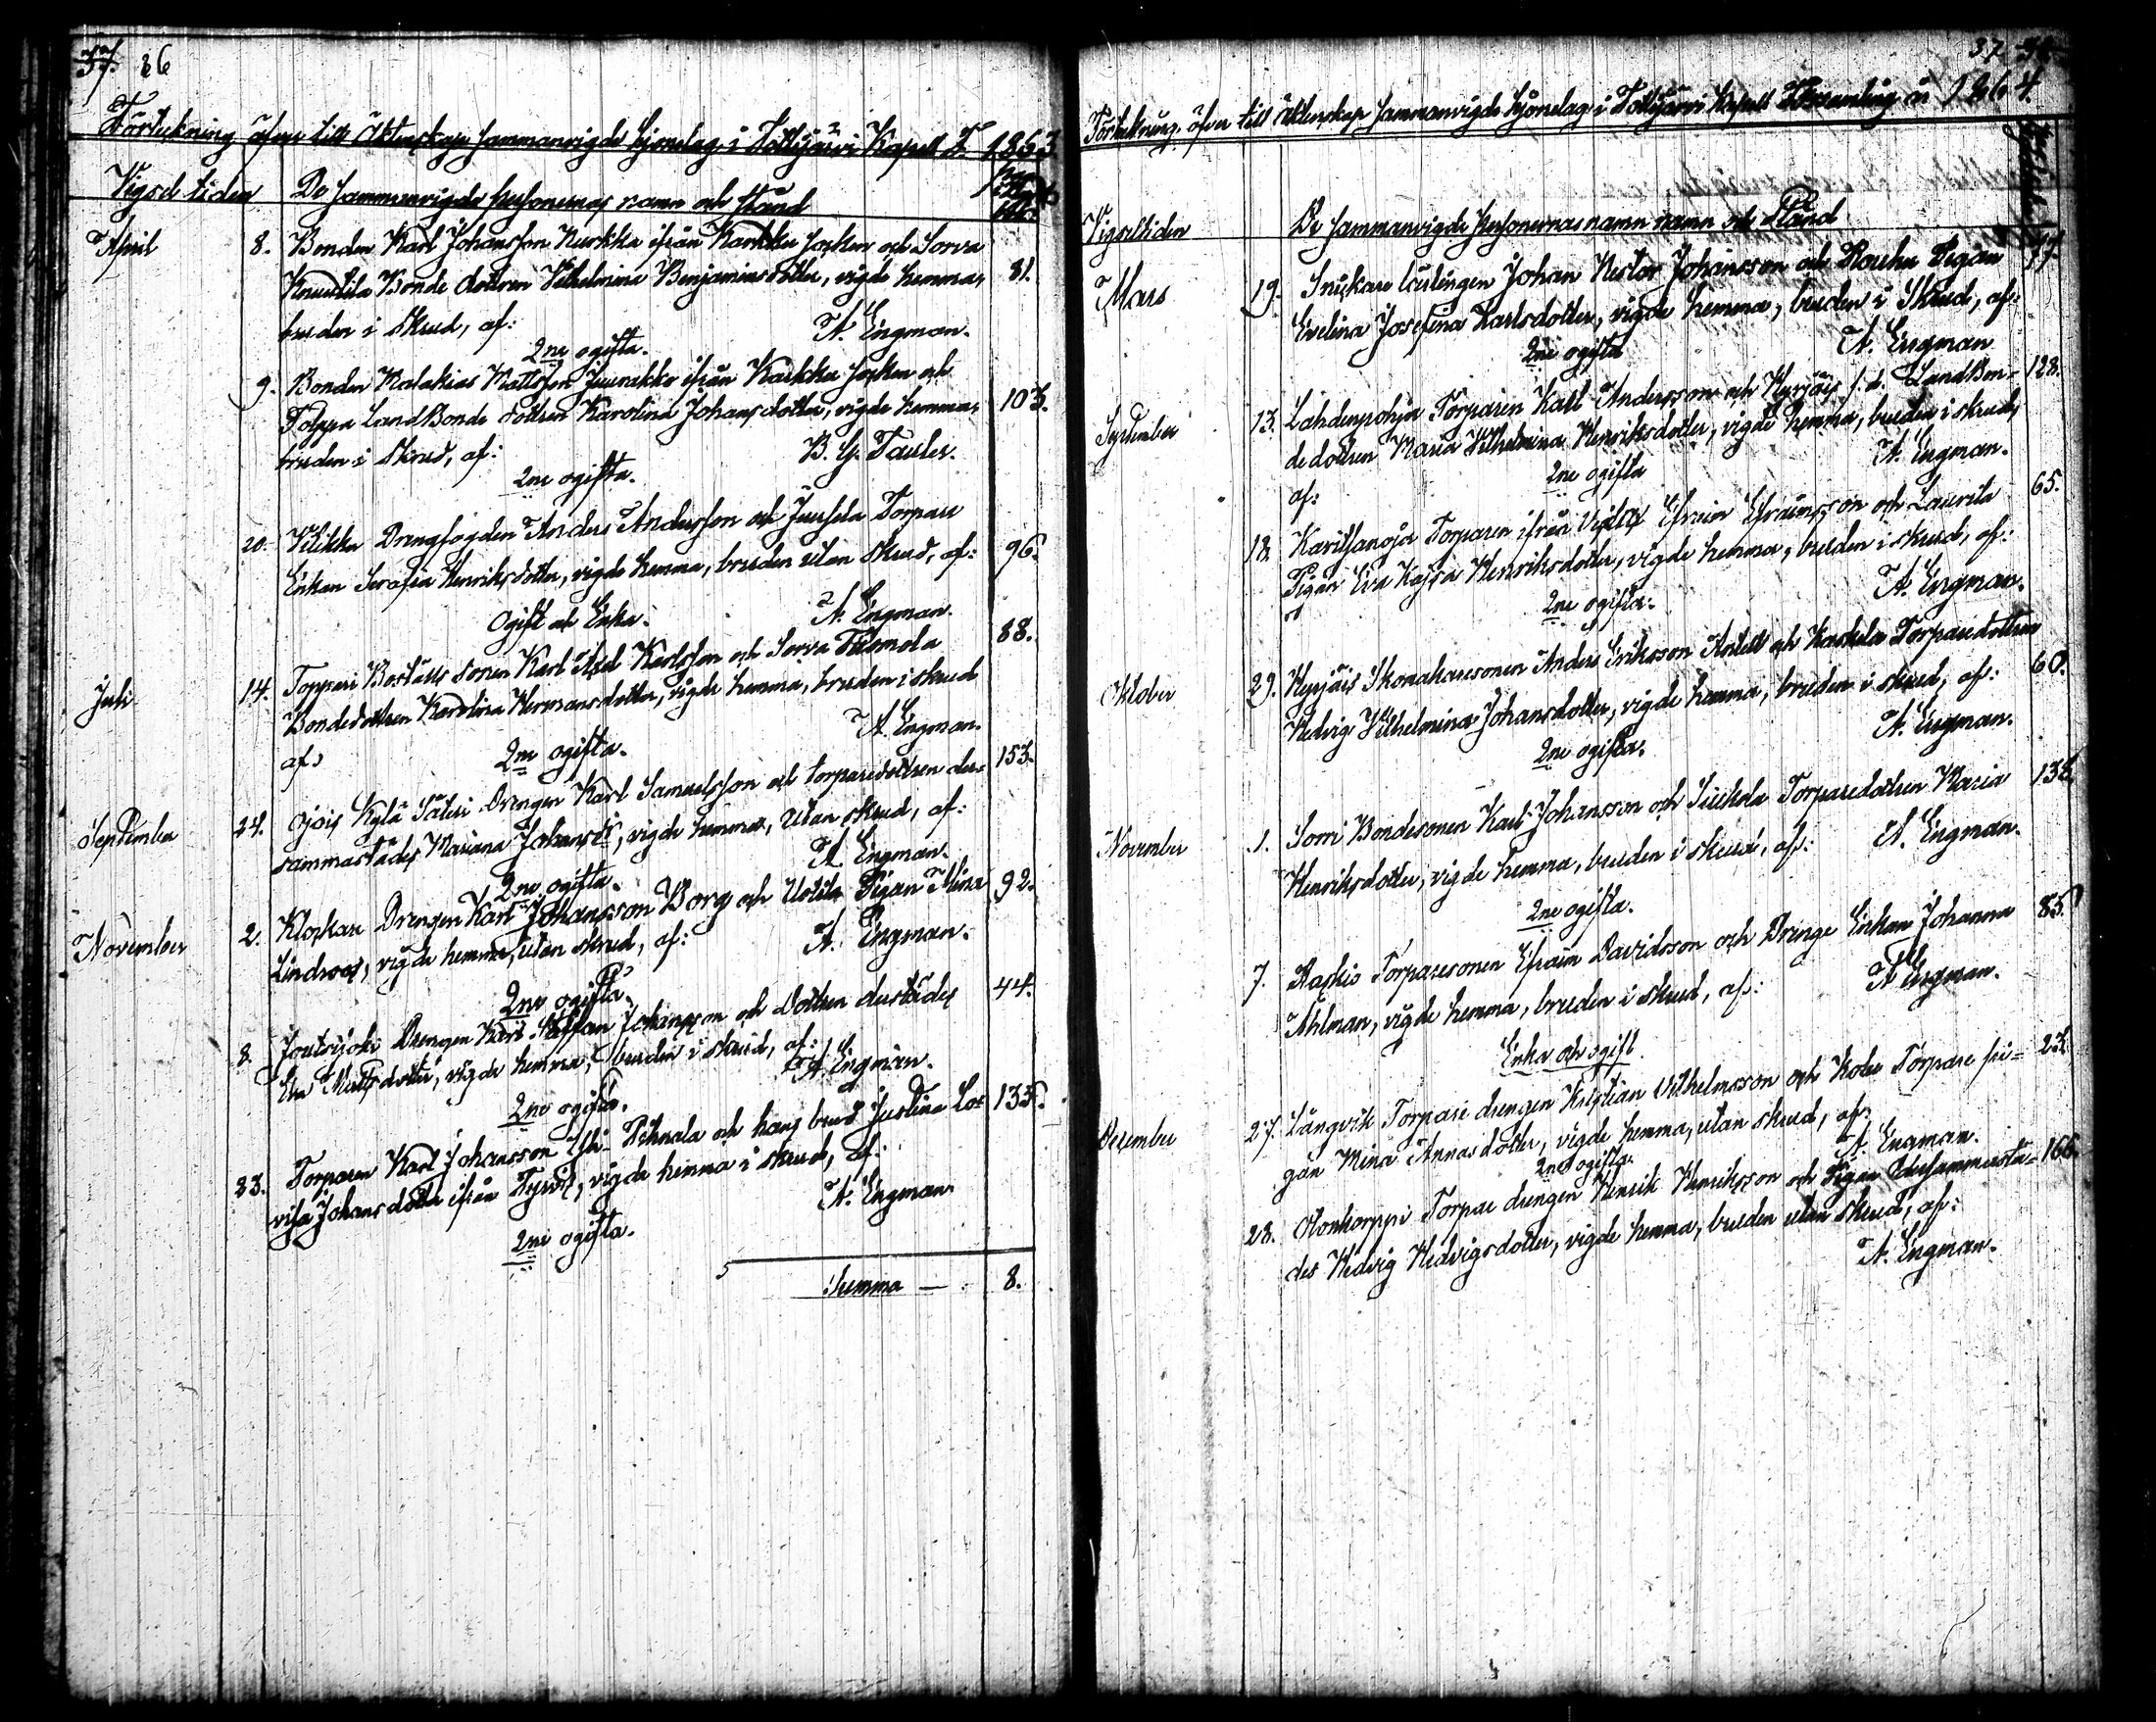 37. 36
Förtekning öfver till Äktenskap sammanvigde hjonelag i Tottijärvi Kapell F. 1863
Vigsel tiden De sammanvigde personernas namn och stånd
April 8. Bonden Karl Johansson Kurkka ifrån Karkku socken och Sorva
Knuutila Bonde dottren Vilhelmina Benjaminsdotter, vigde hemma, 81.
bruden i skrud, af: A. Engman.
2ne ogifta.
9. Bonden Malakias Mattsson Junnikko ifrån Karkku socken och
Landbonde dottren Karolina Johansdotter, vigde hemma, 103.
bruden i skrud, af: B. G. Tauler.
2ne ogifta.
20. Vilikka Drengfogden Anders Andersson och Juusela Torpare
Enkan Serafia Henriksdotter, vigde hemma, bruden utan skrud, af: 96.
Ogift och Enka. A. Engman.
Juli 14. Toppari Boställs sonen Karl Axel Karlsson och Sorva Tuomola 88.
Bondedottren Karolina Hermansdotter, vigde hemma, bruden i skrud
af: A. Engman.
2ne ogifta.
September 24. Ojois Kylä Säteri Drengen Karl Samuelsson och torparedottren der- 153.
sammastädes Mariana Johansdr, vigde hemma, utan skrud, af:
2ne ogifta. A. Engman.
November 2. Klockare Drengen Karl Johansson Borg och Uotila Pigan Mina 92.
Lindroos, vigde hemma, utan skrud, af: A. Engman.
2ne ogifta.
8. Joutsijoki Drengen Karl Staffan Johansson och Dottren derstädes 44.
Eva Mattsdotter, vigde hemma, bruden i skrud, af:
2ne ogifta. A. Engman.
23. Torparen Karl Johansson Yli- Pihnala och hans brud Justina Lo- 135.
visa Johansdotter ifrån Tyrvis, vigde hemma i skrud, af:
2ne ogifta. A. Engman.
Summa — 8.
37
Förtekning öfver till Äktenskap sammanvigde hjonelag i Tottijärvi Kapell Församling år 1864.
Vigseltiden De sammanvigde personernas namn namn och stånd
Mars 19. Snickare lärlingen Johan Nestor Johansson och Rauhu Pigan 77.
Evelina Josefina Karlsdotter, vigde hemma, bruden i Skrud, af:
2ne ogifta A. Engman.
September 13. Lahdenpohja Torparen Karl Andersson och Hyrsjöis f.d. Landbon- 128.
de dottren Maria Vilhelmina Henriksdotter, vigde hemma, bruden i skrud,
af: 2ne ogifta A. Engman.
18. Karitsanoja Torparen ifrån Efraim Efraimsson och Laurila 65.
Pigan Eva Kajsa Henriksdotter, vigde hemma, bruden i skrud, af:
2ne ogifta. A. Engman.
Oktober 29. Hyrsjöis Skomakaresonen Anders Eriksson Antell och Kaskela Torparedottren
Hedvig Vilhelmina Johansdotter, vigde hemma, bruden i skrud, af: 60.
2ne ogifta. A. Engman.
November 1. Sorri Bondesonen Karl Johansson och Siukola Torparedottren Maria 138.
Henriksdotter, vigde hemma, bruden i skrud, af: A. Engman.
2ne ogifta.
7. Raskio Torparesonen Efraim Davidsson och Drenge Enkan Johanna 85.
Ahlman, vigde hemma, bruden i skrud, af: A. Engman.
Enka och ogift.
December 27. Långvik Torpare drengen Kristian Vilhelmsson och Kolu Torpare pi- 23.
gan Mina Annasdotter, vigde hemma, utan skrud, af:
2ne ogifta. A. Engman.
28. Honkorppi Torpare drengen Henrik Henriksson och Pigan dersammastä- 166.
des Hedvig Hedvigsdotter, vigde hemma, bruden utan skrud, af:
A. Engman.